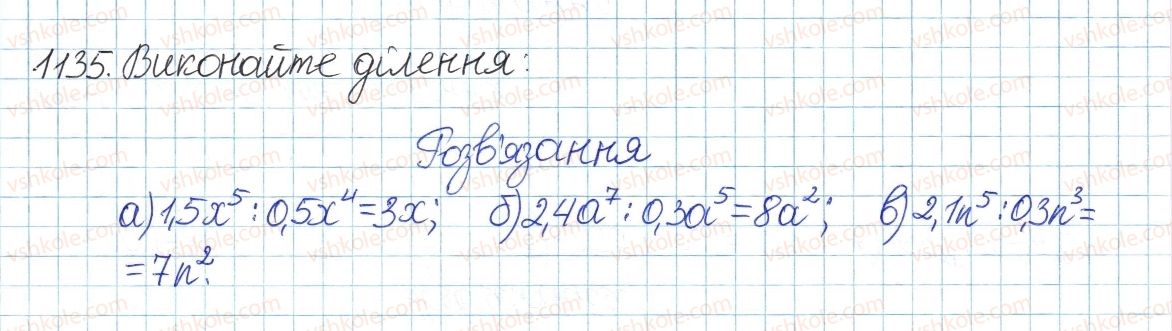 1135. Виконайте ділення:
Розв'язання
а) 1,5x⁵ : 0,5x⁴ = 3x; б) 2,4a⁷ : 0,3a⁵ = 8a²; в) 2,1n⁵ : 0,3n³ =
= 7n².